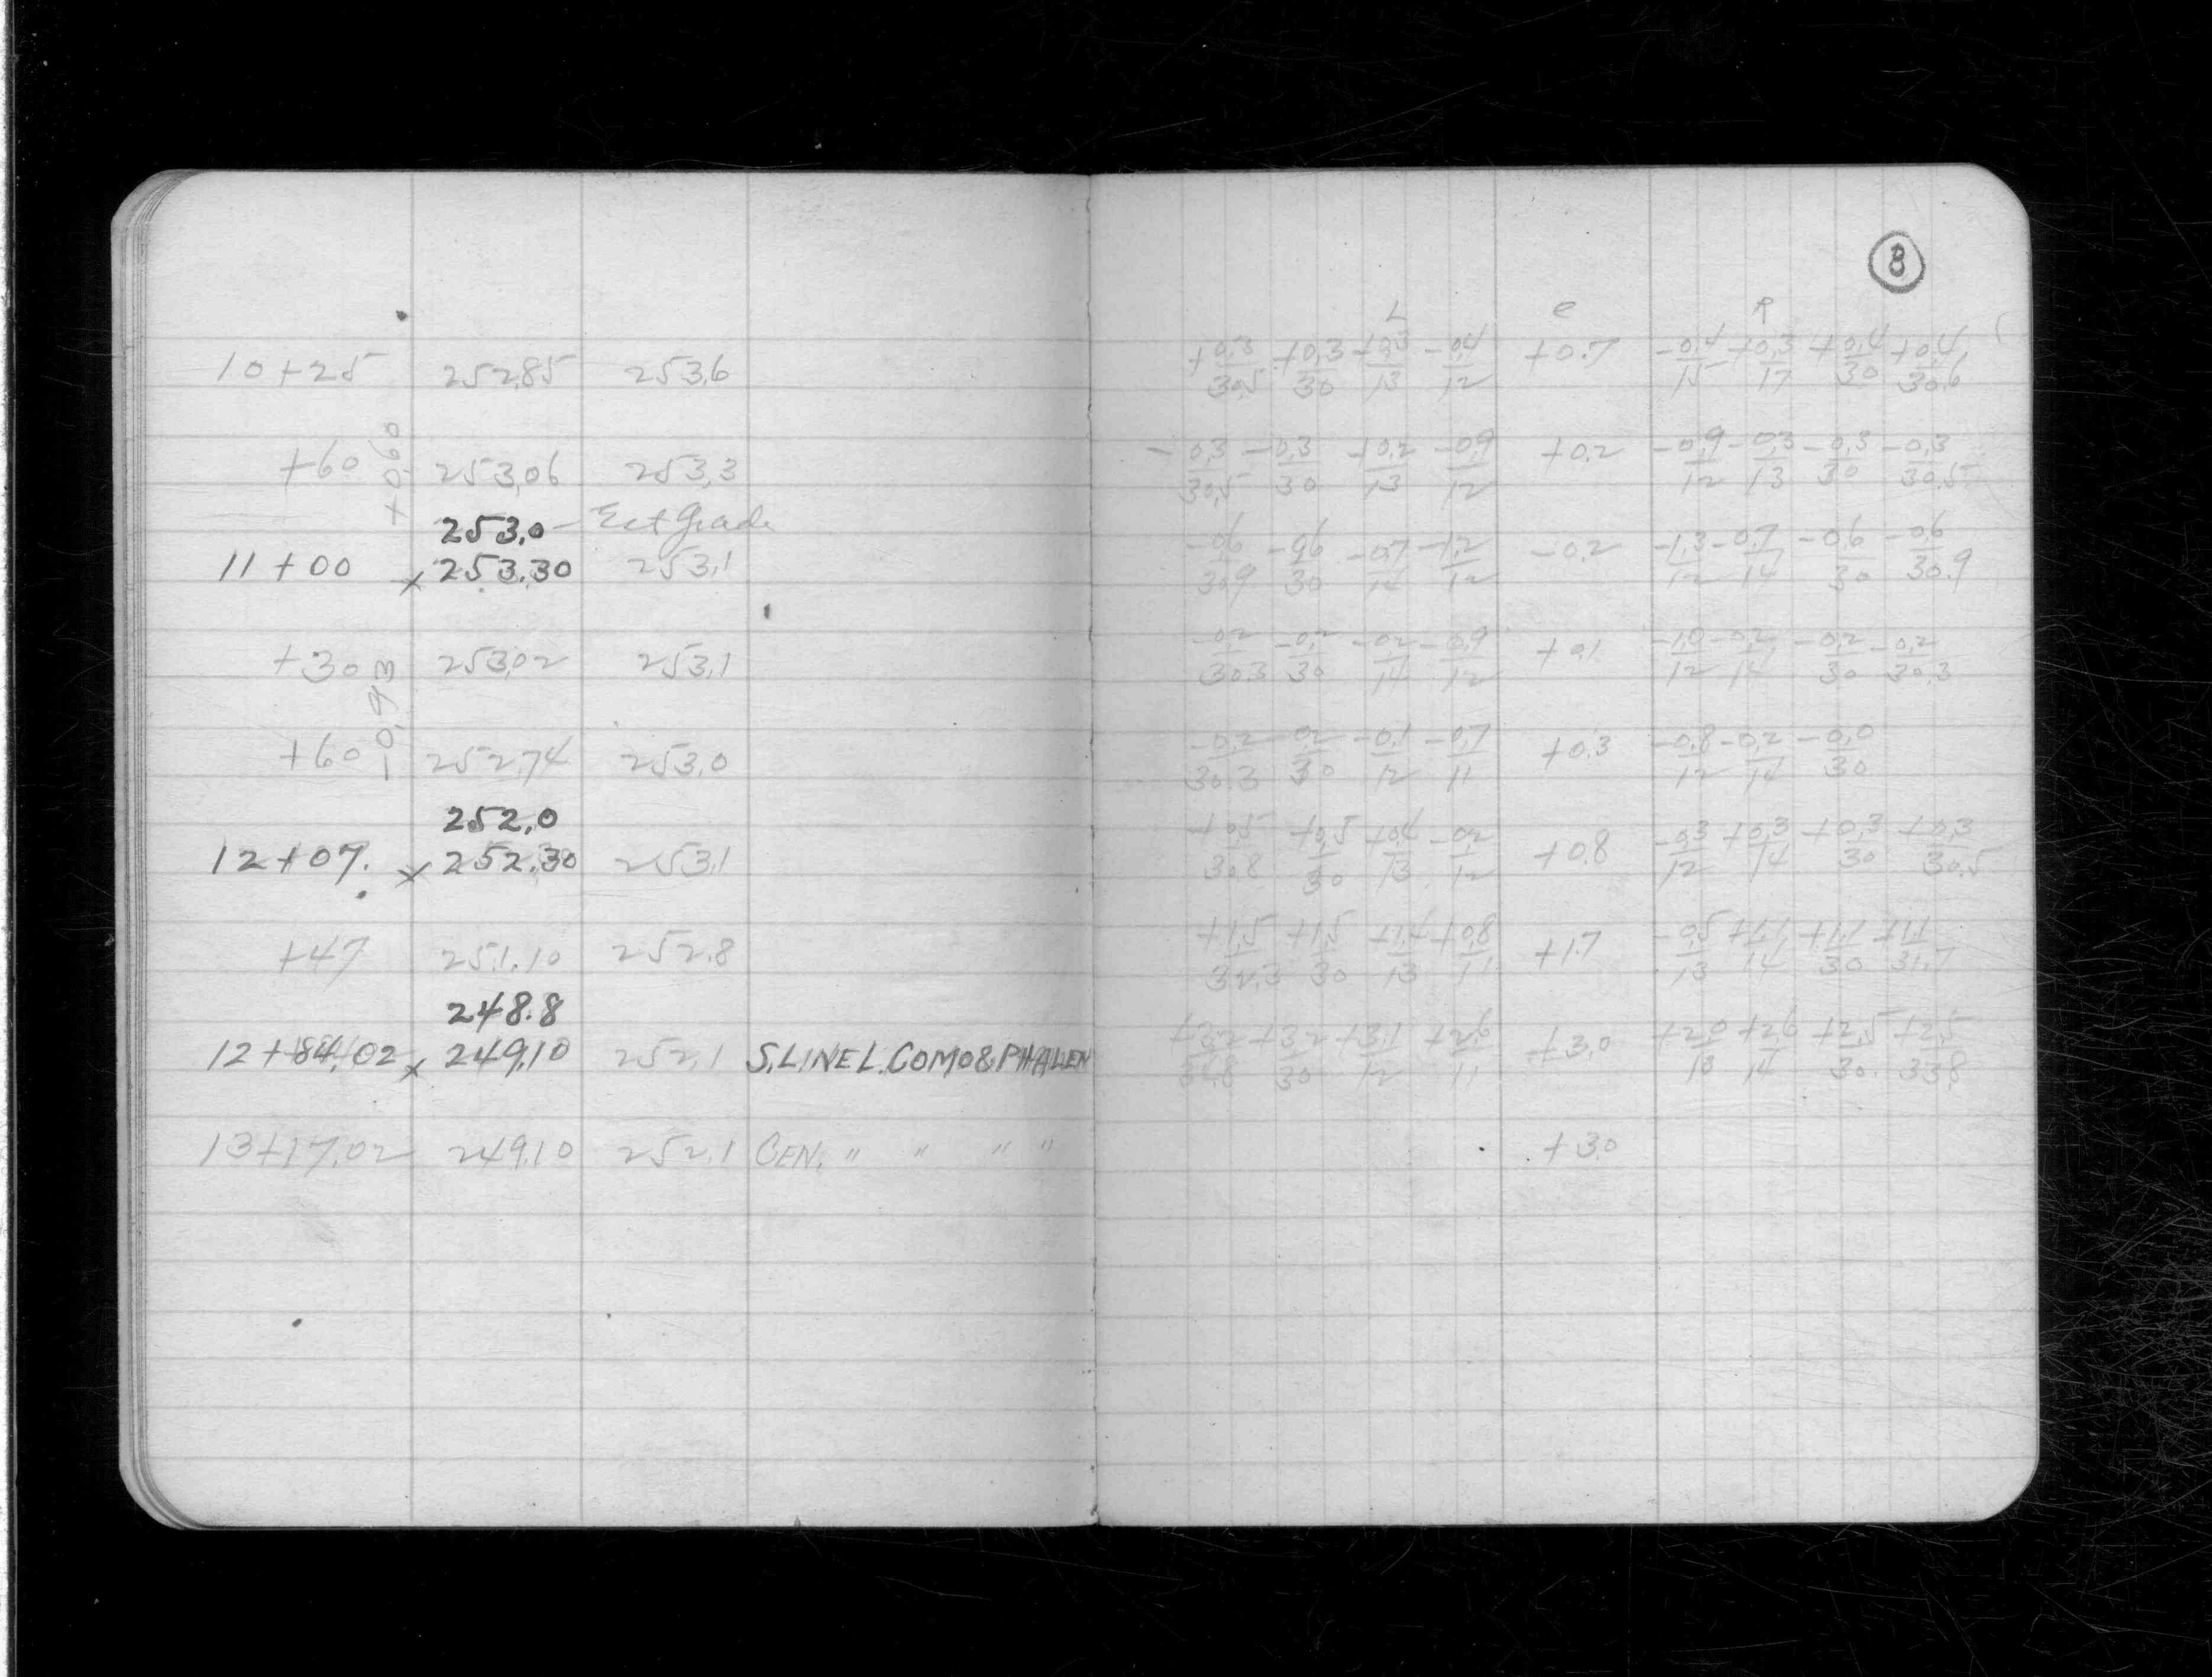 8
L C R
10+25 252.85 253.6 +0.3/30.5 +0.3/30 +0.3/13 -0.4/12 +0.7 -0.4/15 +0.3/17 +0.4/30 +0.4/30.6
+0.60
+60 253.06 253.3 -0.3/30.5 -0.3/30 +0.2/13 -0.9/12 +0.2 -0.9/12 -0.3/13 -0.3/30 -0.3/30.5
253.0 - Ext Grade
11+00 x 253.30 253.1 -0.6/30.9 -0.6/30 -0.7/14 -1.2/12 -0.2 -1.3/12 -0.7/14 -0.6/30 -0.6/30.9
+30 253.02 253.1 -0.2/30.3 -0.2/30 -0.2/14 -0.9/12 +0.1 -1.0/12 -0.2/14 -0.2/30 -0.2/30.3
-0.93
+60 252.74 253.0 -0.2/30.3 -0.2/30 -0.1/12 -0.7/11 +0.3 -0.8/12 -0.2/14 -0.0/30
252.0
12+07. x 252.30 253.1 +0.5/30.8 +0.5/30 +0.4/13 -0.2/12 +0.8 -0.3/12 +0.3/14 +0.3/30 +0.3/30.5
+47 251.10 252.8 +1.5/32.3 +1.5/30 +1.4/13 +0.8/11 +1.7 -0.5/13 +1.1/14 +1.1/30 +1.1/31.7
248.8
12+84.02 x 249.10 252.1 S.LINE L.COMO & PHALEN +3.2/34.8 +3.2/30 +3.1/12 +2.6/11 +3.0 +2.0/13 +2.6/14 +2.5/30. +2.5/33.8
13+17.02 249.10 252.1 CEN. " " " " +3.0